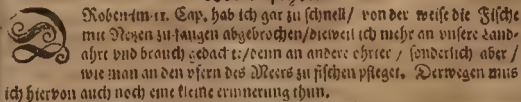 DRoben im 11. Cap. hab ich gar zu schnell / von der weise die Fische
mit Netzen zu fangen abgebrochen / dieweil ich mehr an vnsere Land-
ahrt vnd brauch gedacht / denn an andere öhrter / sonderlich aber /
wie man an den vfern des Meers zu fischen pfleget. Derwegen mus
ich hiervon auch noch eine kleine erinnerung thun.